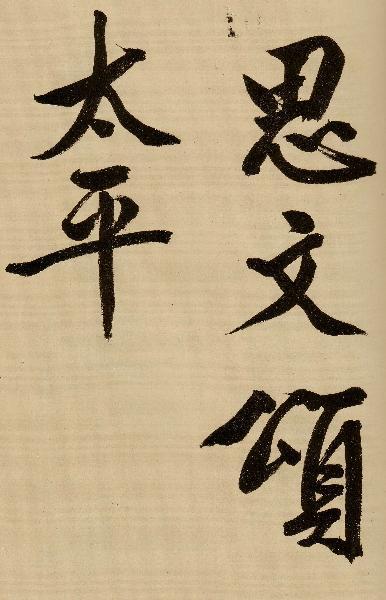 思文頌
太平